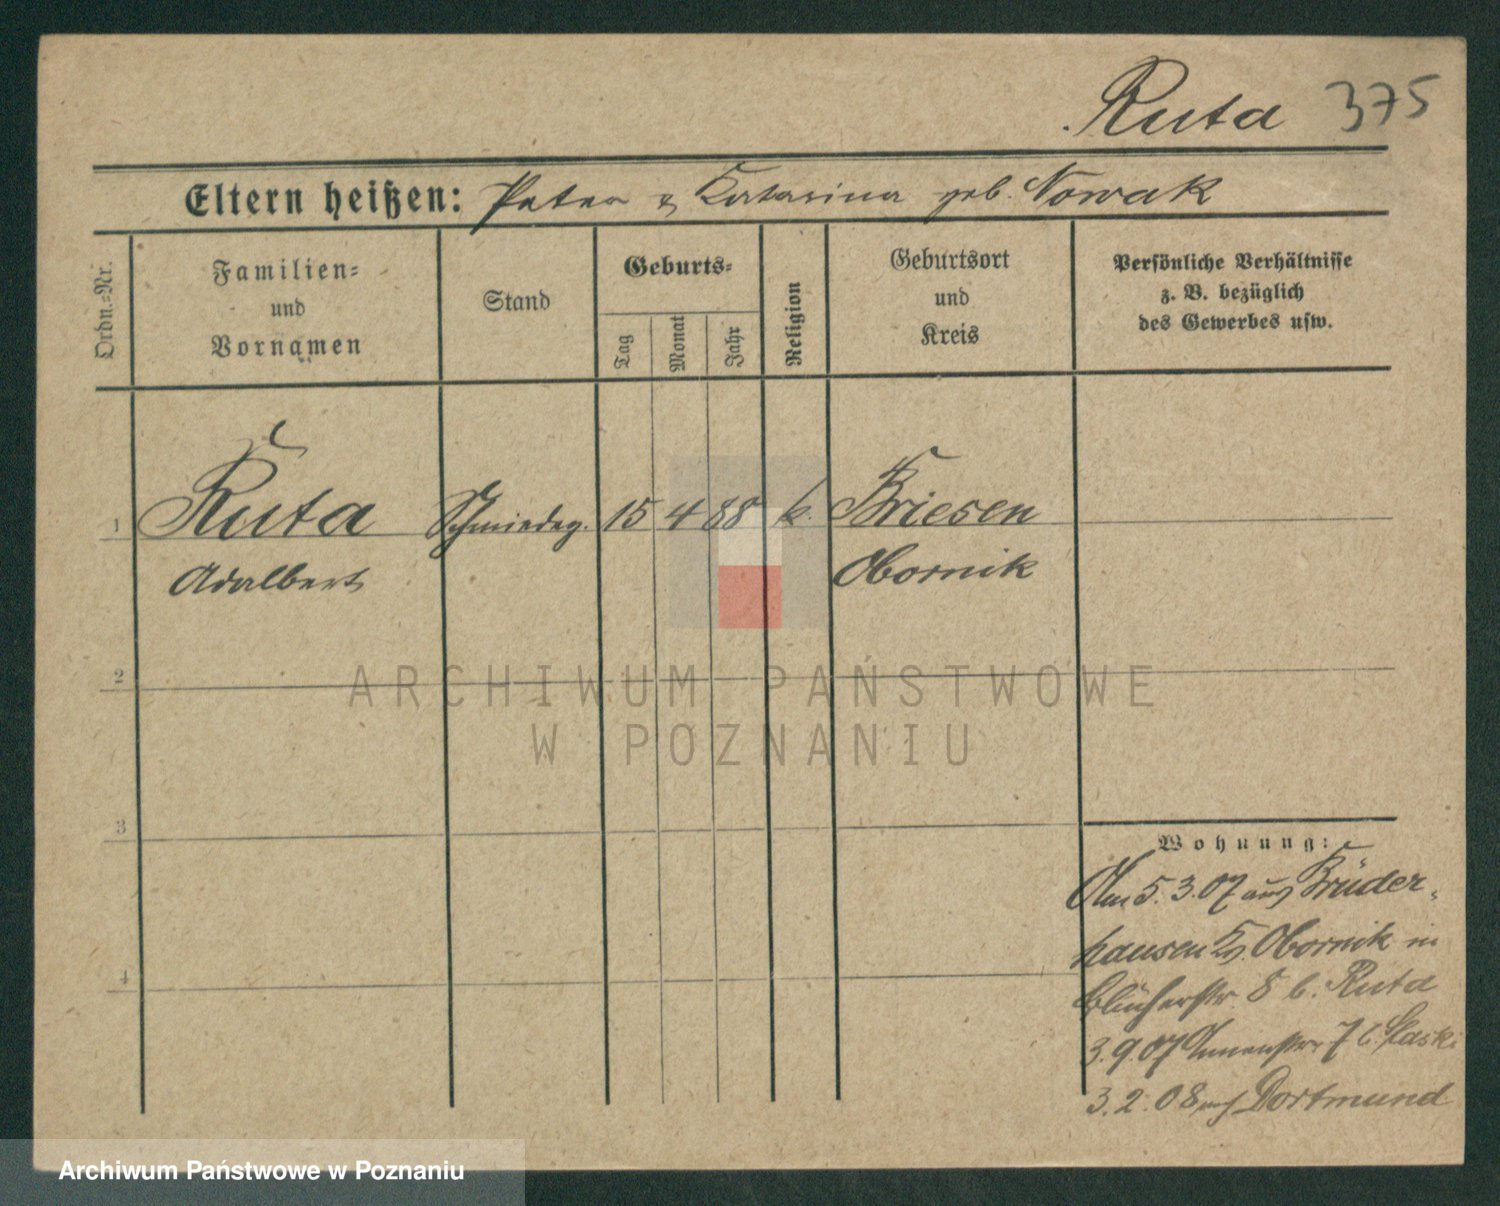 Ruta 375
Eltern heißen: Peter & Katarina geb. Nowak
Ordn.=Nr.
Familien=
und
Vornamen
Stand
Geburts=
Tag
Monat
Jahr
Religion
Geburtsort
und
Kreis
Persönliche Verhältnisse
z. B. bezüglich
des Gewerbes usw.
1 Ruta Schmiedeg. 15 4 88 k. Briesen
Adalbert Obornik
2
ARCHIWUM PAŃSTWOWE
W POZNANIU
3
Wohnung:
Am 5.3.07 aus Brüder-
hausen Kr. Obornik in
4
Blücherstr. 8 b. Ruta
3.9.07 7 b.
3.2.08 auf Dortmund
Archiwum Państwowe w Poznaniu